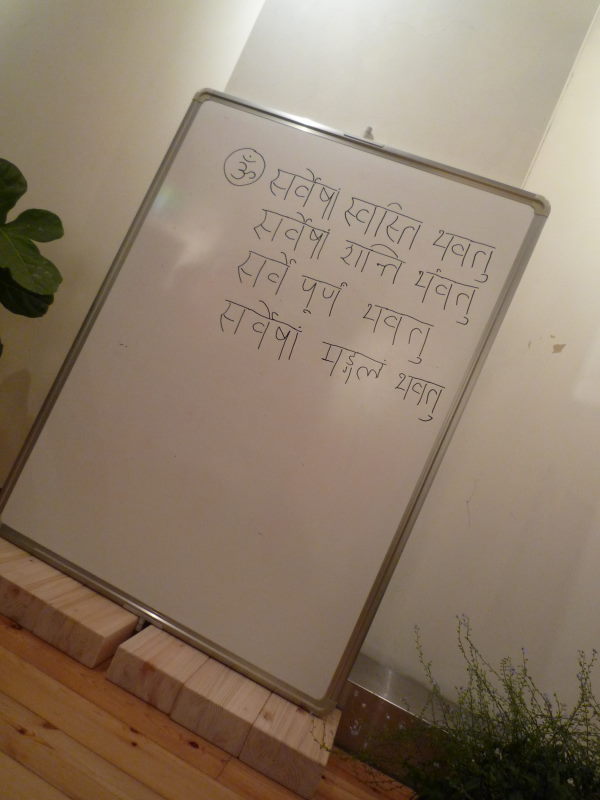 ॐ सर्वेषां स्वस्ति भवतु
सर्वेषां शान्ति र्भवतु
सर्वे पूर्णं भवतु
सर्वेषां मङ्गलं भवतु